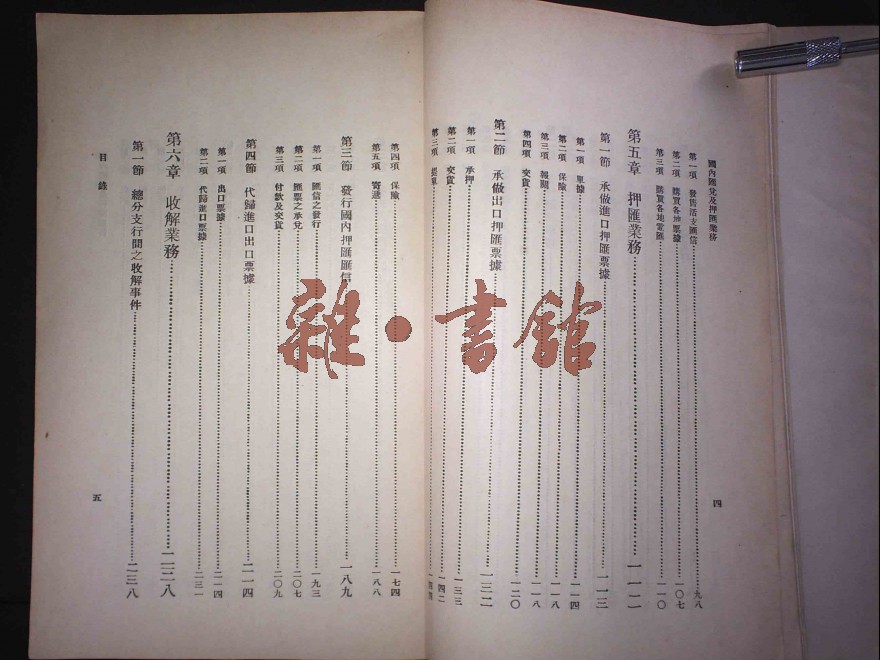 國內匯兌及押匯業務
第一項 發售活支匯信……九八
第二項 購買各地票據……一〇七
第三項 購買各地電匯……一一〇
第五章 押匯業務……一一二
第一節 承做進口押匯票據……一一三
第一項 單據……一一四
第二項 保險……一一八
第三項 報關……一一八
第四項 交貨……一二〇
第二節 承做出口押匯票據……一三二
第一項 承押……一三三
第二項 交貨……一四二
第三項
四
第四項 保險……一七四
第五項 寄遞……一八八
第三節 發行國內押匯匯信……一八九
第一項 匯信之發行……一九三
第二項 匯票之承兌……二〇七
第三項 付款及交貨……二〇九
第四節 代歸進口出口票據……二一四
第一項 出口票據……二一四
第二項 代歸進口票據……二三一
第六章 收解業務……二三八
第一節 總分支行間之收解事件……二三八
目錄
五
雜·書館